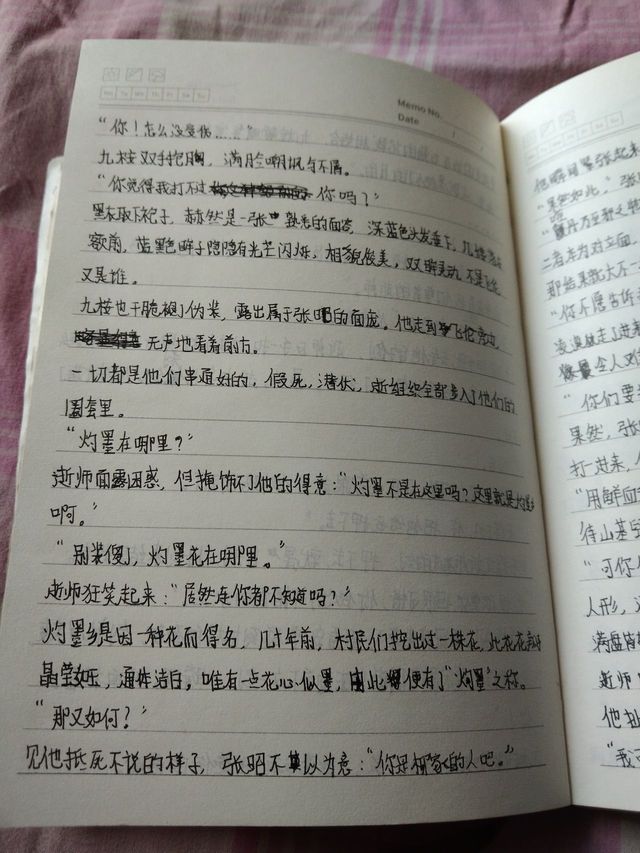 Memo No.
Date
Mo Tu We Th Fr Sa Su
“你！怎么没受伤……”
九桉双手抱胸，满脸嘲讽与不屑。
“你觉得我打不过 你吗？”
取下 ，赫然是一张 熟悉的面容，深蓝色头发垂下，几缕落在
额前，蓝墨色眸子隐隐有光芒闪烁，相貌俊美，双眸灵动，不是飞佗
又是谁。
九桉也干脆褪了伪装，露出属于张昭的面庞。他走到飞佗旁边，
无声地看着前方。
一切都是他们串通好的，假死，潜伏，逝组织全部步入了他们的
圈套里。
“灼墨在哪里？”
逝师面露困惑，但掩饰不了他的得意：“灼墨不是在这里吗？这里就是灼墨乡
啊。”
“别装傻了，灼墨花在哪里。”
逝师狂笑起来：“居然连你都不知道吗？”
灼墨乡是因一种花而得名，几十年前，村民们挖出过一株花，此花花
晶莹如玉，通体洁白，唯有一点花心似墨，由此 便有了“灼墨”之称。
“那又如何？”
见他抵死不说的样子，张昭不以为意：“你是柳家的人吧。”
他瞬间紧张起来
“果然如此，”张
二者本为对立面
那结果就大不一
“你不愿告诉
令人
“你们要
果然，张
打一进来，
“用鲜血
待山基
“可你
人形，
满盘皆
逝师
他扯
“我可